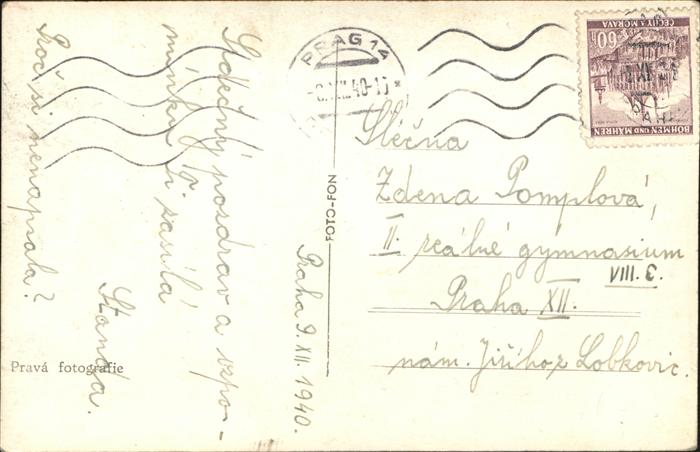 Srdečný pozdrav a vzpo-
mínku Ti zasílá
Standa.
Proč si nenapsala?
Praha 9. XII. 1940.
Pravá fotografie
FOTO-FON
PRAG 14
40-1
60
ČECHY A MORAVA
BÖHMEN UND MÄHREN
Slečna
Zdena Pomplová,
II. reálné gymnasium
VIII. E.
Praha XII.
nám. Jiřího z Lobkovic.